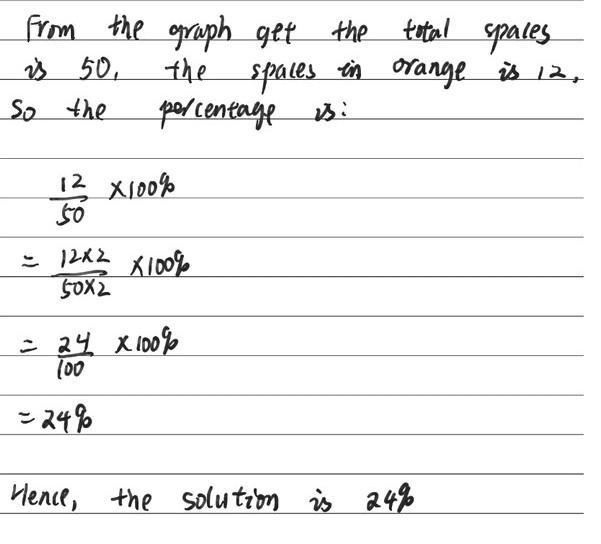 From the graph get the total spaces
is 50, the spaces in orange is 12,
So the percentage is:
12/50 ×100%
= 12×2/50×2 ×100%
= 24/100 ×100%
= 24%
Hence, the solution is 24%